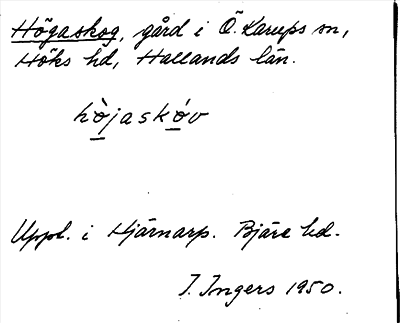 Högaskog, gård i Ö. Karups sn,
Höks hd, Hallands län.
hò̲jaskó̲v
Uppl. i Hjärnarp. Bjäre hd.
I. Ingers 1950.